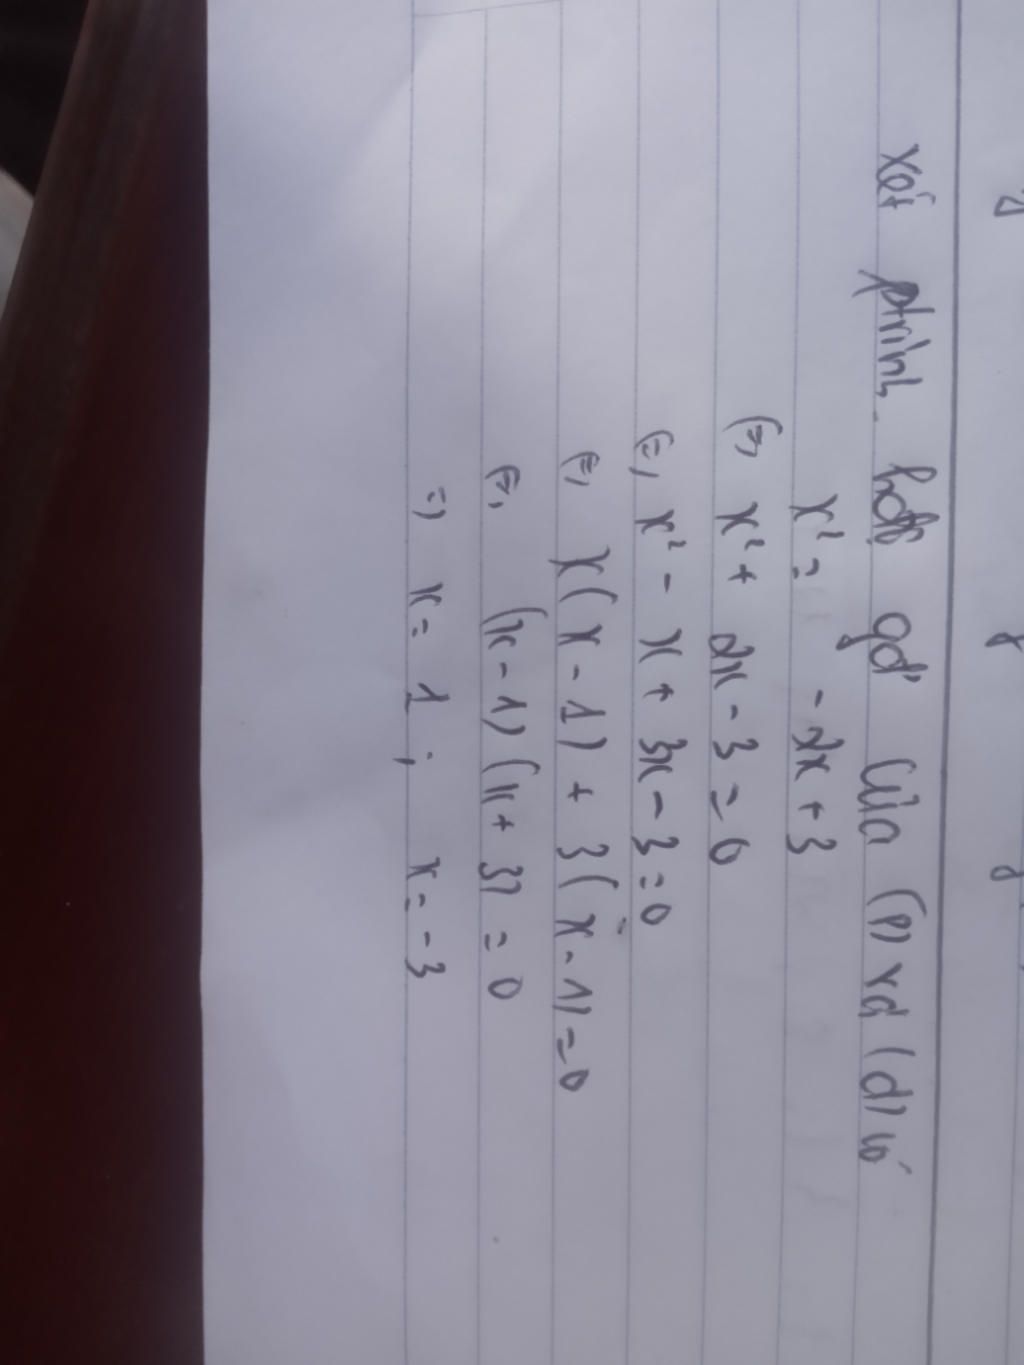 xét ptrình hđộ gđ của (P) và (d) có
x² = -2x + 3
(=) x² + 2x - 3 = 0
(=) x² - x + 3x - 3 = 0
(=) x(x - 1) + 3(x - 1) = 0
(=) (x - 1)(x + 3) = 0
=) x = 1 ; x = -3